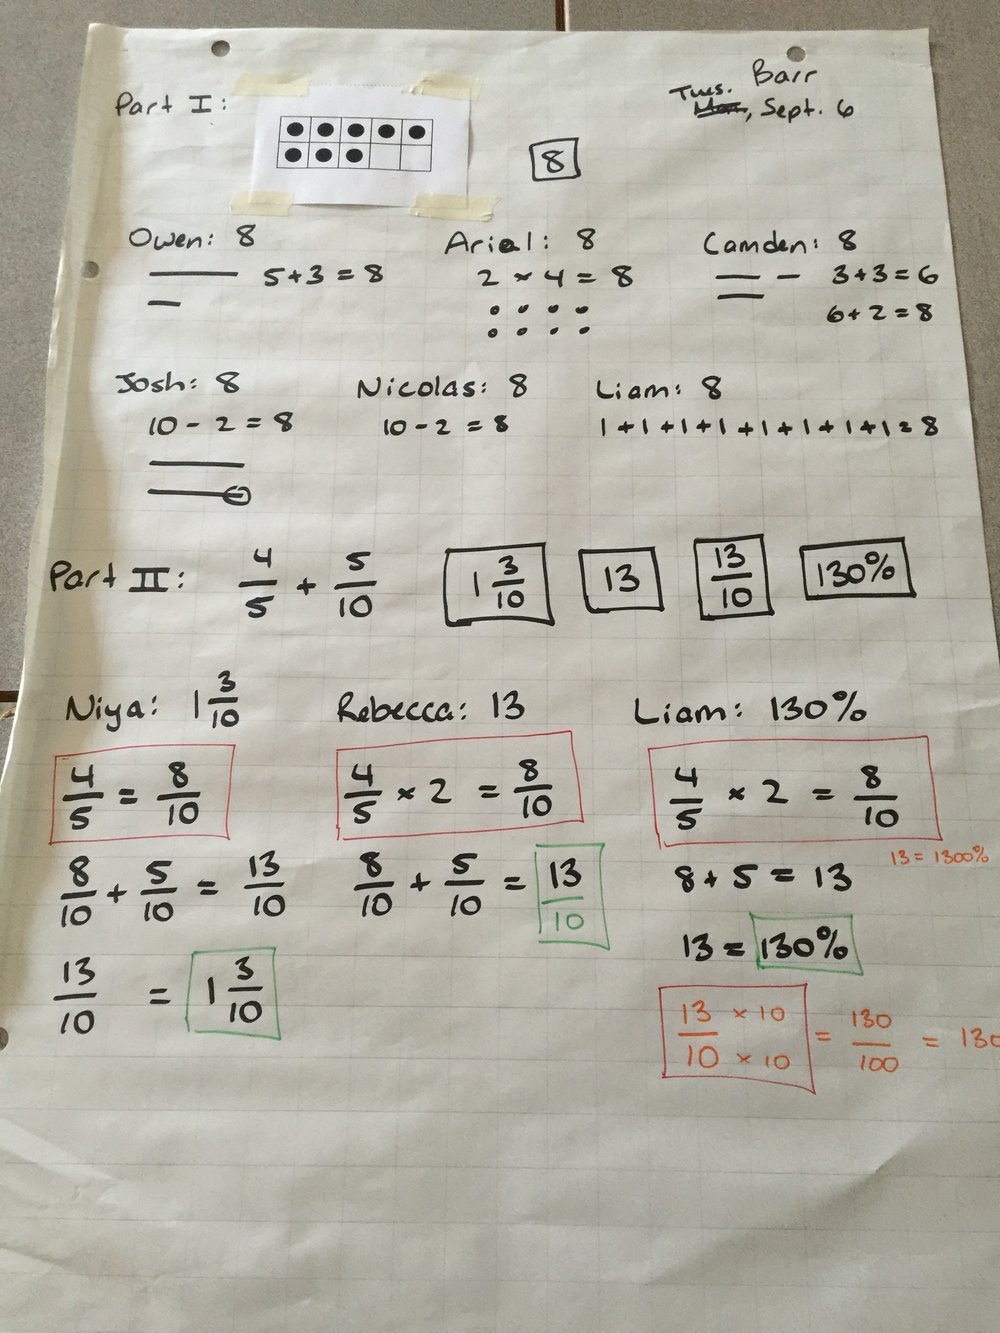 Barr
Part I:
Tues.
Mon, Sept. 6
8
Owen: 8
5 + 3 = 8
Arial: 8
2 × 4 = 8
Camden: 8
3 + 3 = 6
6 + 2 = 8
Josh: 8
10 - 2 = 8
Nicolas: 8
10 - 2 = 8
Liam: 8
1 + 1 + 1 + 1 + 1 + 1 + 1 + 1 = 8
Part II: 4/5 + 5/10 1 3/10 13 13/10 130%
Niya: 1 3/10
4/5 = 8/10
8/10 + 5/10 = 13/10
13/10 = 1 3/10
Rebecca: 13
4/5 × 2 = 8/10
8/10 + 5/10 = 13/10
Liam: 130%
4/5 × 2 = 8/10
13 = 1300%
8 + 5 = 13
13 = 130%
13/10 × 10 × 10 = 130/100 = 130